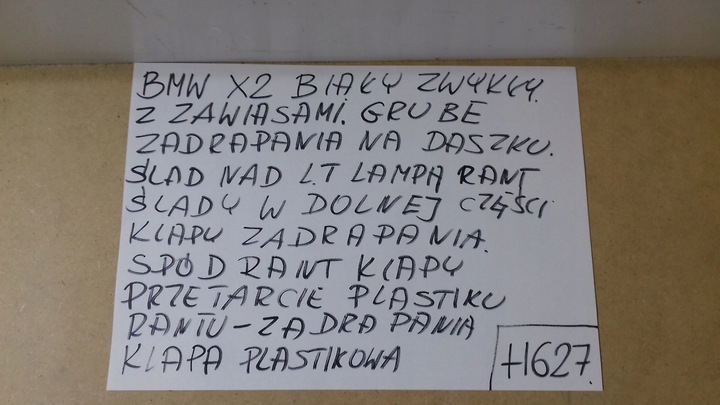 BMW X2 BIAŁY ZWYKŁY.
Z ZAWIASAMI. GRUBE
ZADRAPANIA NA DASZKU.
ŚLAD NAD LT LAMPĄ RANT
ŚLADY W DOLNEJ CZĘŚCI
KLAPY ZADRAPANIA.
SPÓD RANT KLAPY
PRZETARCIE PLASTIKU
RANTU-ZADRAPANIA
KLAPA PLASTIKOWA
H627.